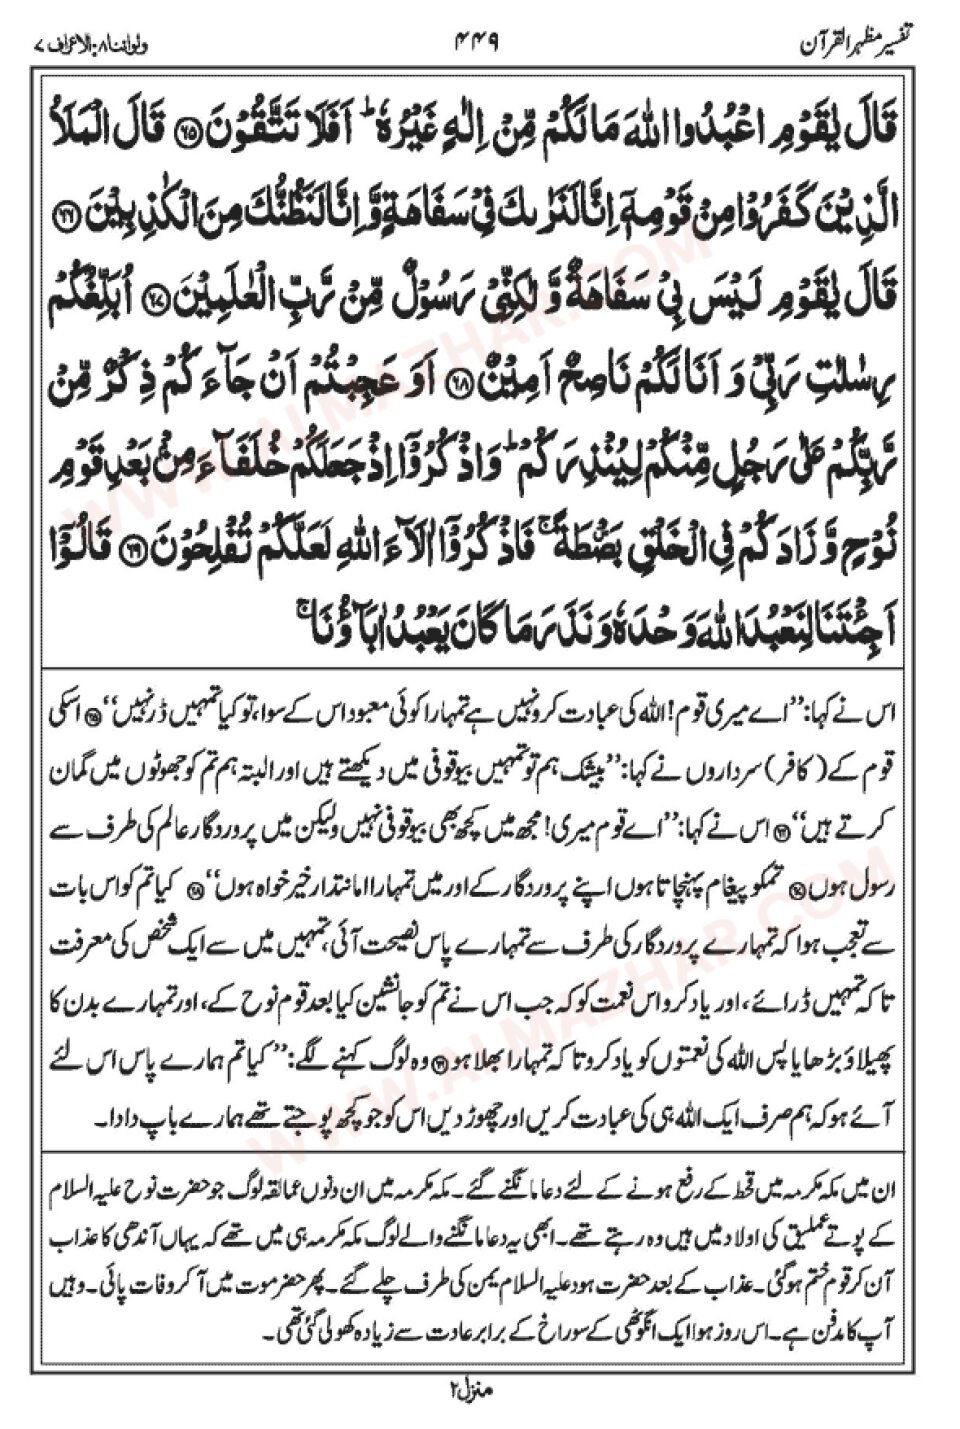 تفسیر مظہر القرآن ۴۴۹ ولو اننا ۸: الاعراف ۷
قَالَ يٰقَوْمِ اعْبُدُوا اللّٰهَ مَا لَكُمْ مِّنْ اِلٰهٍ غَيْرُهٗ ؕ اَفَلَا تَتَّقُوْنَ ﴿۶۵﴾ قَالَ الْمَلَاُ
الَّذِيْنَ كَفَرُوْا مِنْ قَوْمِهٖٓ اِنَّا لَنَرٰىكَ فِيْ سَفَاهَةٍ وَّ اِنَّا لَنَظُنُّكَ مِنَ الْكٰذِبِيْنَ ﴿۶۶﴾
قَالَ يٰقَوْمِ لَيْسَ بِيْ سَفَاهَةٌ وَّ لٰكِنِّيْ رَسُوْلٌ مِّنْ رَّبِّ الْعٰلَمِيْنَ ﴿۶۷﴾ اُبَلِّغُكُمْ
رِسٰلٰتِ رَبِّيْ وَ اَنَا لَكُمْ نَاصِحٌ اَمِيْنٌ ﴿۶۸﴾ اَوَ عَجِبْتُمْ اَنْ جَآءَكُمْ ذِكْرٌ مِّنْ
رَّبِّكُمْ عَلٰى رَجُلٍ مِّنْكُمْ لِيُنْذِرَكُمْ ؕ وَ اذْكُرُوْٓا اِذْ جَعَلَكُمْ خُلَفَآءَ مِنْۢ بَعْدِ قَوْمِ
نُوْحٍ وَّ زَادَكُمْ فِي الْخَلْقِ بَصْۜطَةً ۚ فَاذْكُرُوْٓا اٰلَآءَ اللّٰهِ لَعَلَّكُمْ تُفْلِحُوْنَ ﴿۶۹﴾ قَالُوْٓا
اَجِئْتَنَا لِنَعْبُدَ اللّٰهَ وَحْدَهٗ وَ نَذَرَ مَا كَانَ يَعْبُدُ اٰبَآؤُنَا ۚ
اس نے کہا: ’’اے میری قوم! اللہ کی عبادت کرو نہیں ہے تمہارا کوئی معبود اس کے سوا، تو کیا تمہیں ڈر نہیں‘‘ ﴿۶۵﴾ اسکی
قوم کے (کافر) سرداروں نے کہا: ’’بیشک ہم تو تمہیں بیوقوفی میں دیکھتے ہیں اور البتہ ہم تم کو جھوٹوں میں گمان
کرتے ہیں‘‘ ﴿۶۶﴾ اس نے کہا: ’’اے قوم میری! مجھ میں کچھ بھی بیوقوفی نہیں ولیکن میں پروردگار عالم کی طرف سے
رسول ہوں ﴿۶۷﴾ تمکو پیغام پہنچاتا ہوں اپنے پروردگار کے اور میں تمہارا امانتدار خیر خواہ ہوں‘‘ ﴿۶۸﴾ کیا تم کو اس بات
سے تعجب ہوا کہ تمہارے پروردگار کی طرف سے تمہارے پاس نصیحت آئی، تمہیں میں سے ایک شخص کی معرفت
تا کہ تمہیں ڈرائے، اور یاد کرو اس نعمت کو کہ جب اس نے تم کو جانشین کیا بعد قوم نوح کے، اور تمہارے بدن کا
پھیلاؤ بڑھایا پس اللہ کی نعمتوں کو یاد کرو تا کہ تمہارا بھلا ہو ﴿۶۹﴾ وہ لوگ کہنے لگے: ’’کیا تم ہمارے پاس اس لئے
آئے ہو کہ ہم صرف ایک اللہ ہی کی عبادت کریں اور چھوڑ دیں اس کو جو کچھ پوجتے تھے ہمارے باپ دادا۔
ان میں مکہ مکرمہ میں قحط کے رفع ہونے کے لئے دعا مانگنے گئے۔ مکہ مکرمہ میں ان دنوں عمالقہ لوگ جو حضرت نوح علیہ السلام
کے پوتے عملیق کی اولاد میں ہیں وہ رہتے تھے۔ ابھی یہ دعا مانگنے والے لوگ مکہ مکرمہ ہی میں تھے کہ یہاں آندھی کا عذاب
آن کر قوم ختم ہو گئی۔ عذاب کے بعد حضرت ہود علیہ السلام یمن کی طرف چلے گئے۔ پھر حضرموت میں آ کر وفات پائی۔ وہیں
آپ کا مدفن ہے۔ اس روز ہوا ایک انگوٹھی کے سوراخ کے برابر عادت سے زیادہ کھولی گئی تھی۔
منزل ۲
WWW.ALMAZHAR.COM
WWW.ALMAZHAR.COM